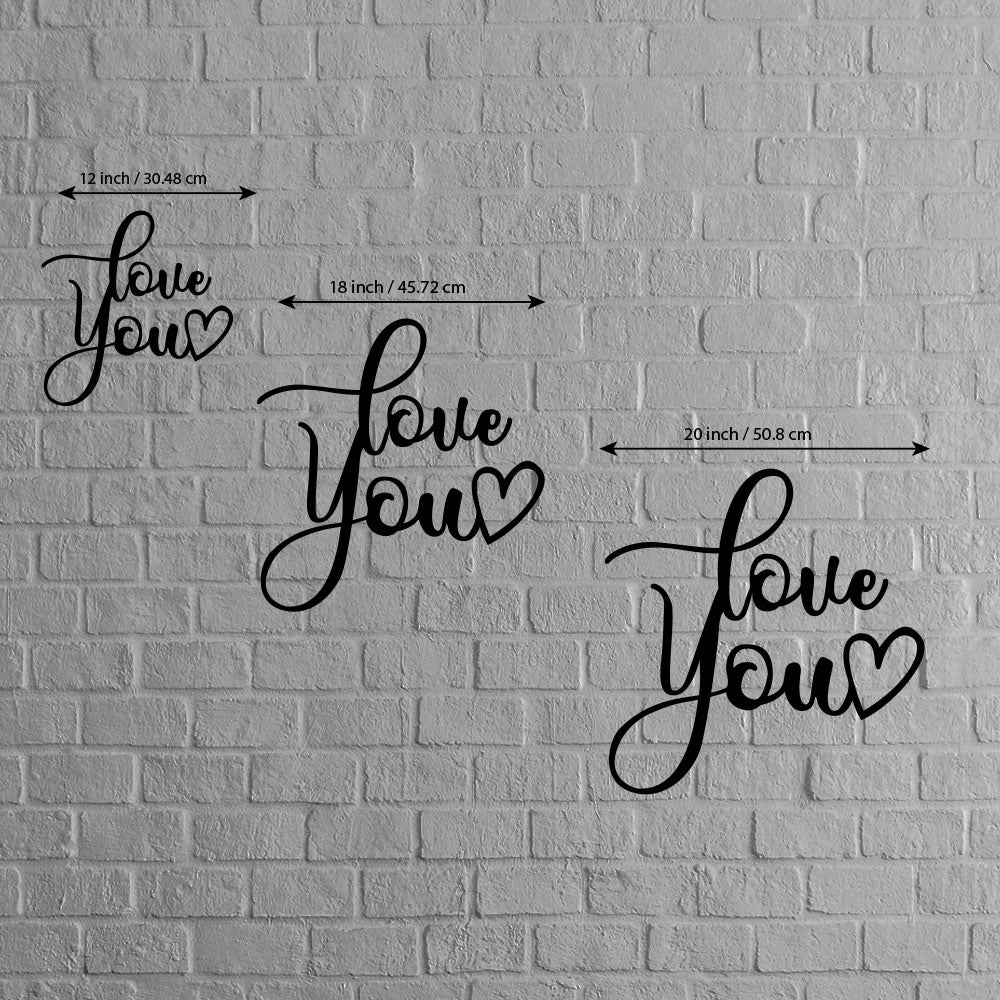 12 inch / 30.48 cm
love
You
18 inch / 45.72 cm
love
You
20 inch / 50.8 cm
love
You